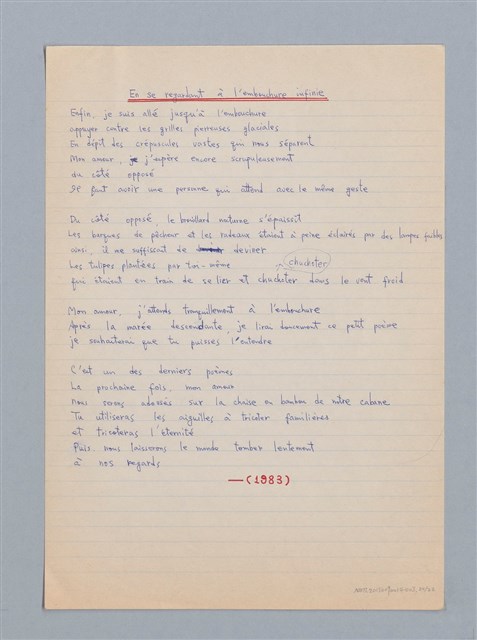 En se regardant à l'embouchure infinie
Enfin, je suis allé jusqu'à l'embouchure
appuyer contre les grilles pierreuses glaciales
En dépit des crépuscules vastes qui nous séparent
Mon amour, je j'espère encore scrupuleusement
du côté opposé
Il faut avoir une personne qui attend avec le même geste
Du côté opposé, le brouillard nature s'épaissit
Les barques de pêcheur et les radeaux étaient à peine éclairés par des lampes faibles
ainsi, il me suffisait de deviner
Les tulipes plantées par toi-même
chuchoter
qui étaient en train de se lier et chuchoter dans le vent froid
Mon amour, j'attends tranquillement à l'embouchure
Après la marée descendante, je lirai doucement ce petit poème
je souhaiterai que tu puisses l'entendre
C'est un des derniers poèmes
La prochaine fois, mon amour
nous serons adossés sur la chaise en bambou de notre cabane
Tu utiliseras les aiguilles à tricoter familières
et tricoteras l'éternité
Puis nous laisserons le monde tomber lentement
à nos regards
—(1983)